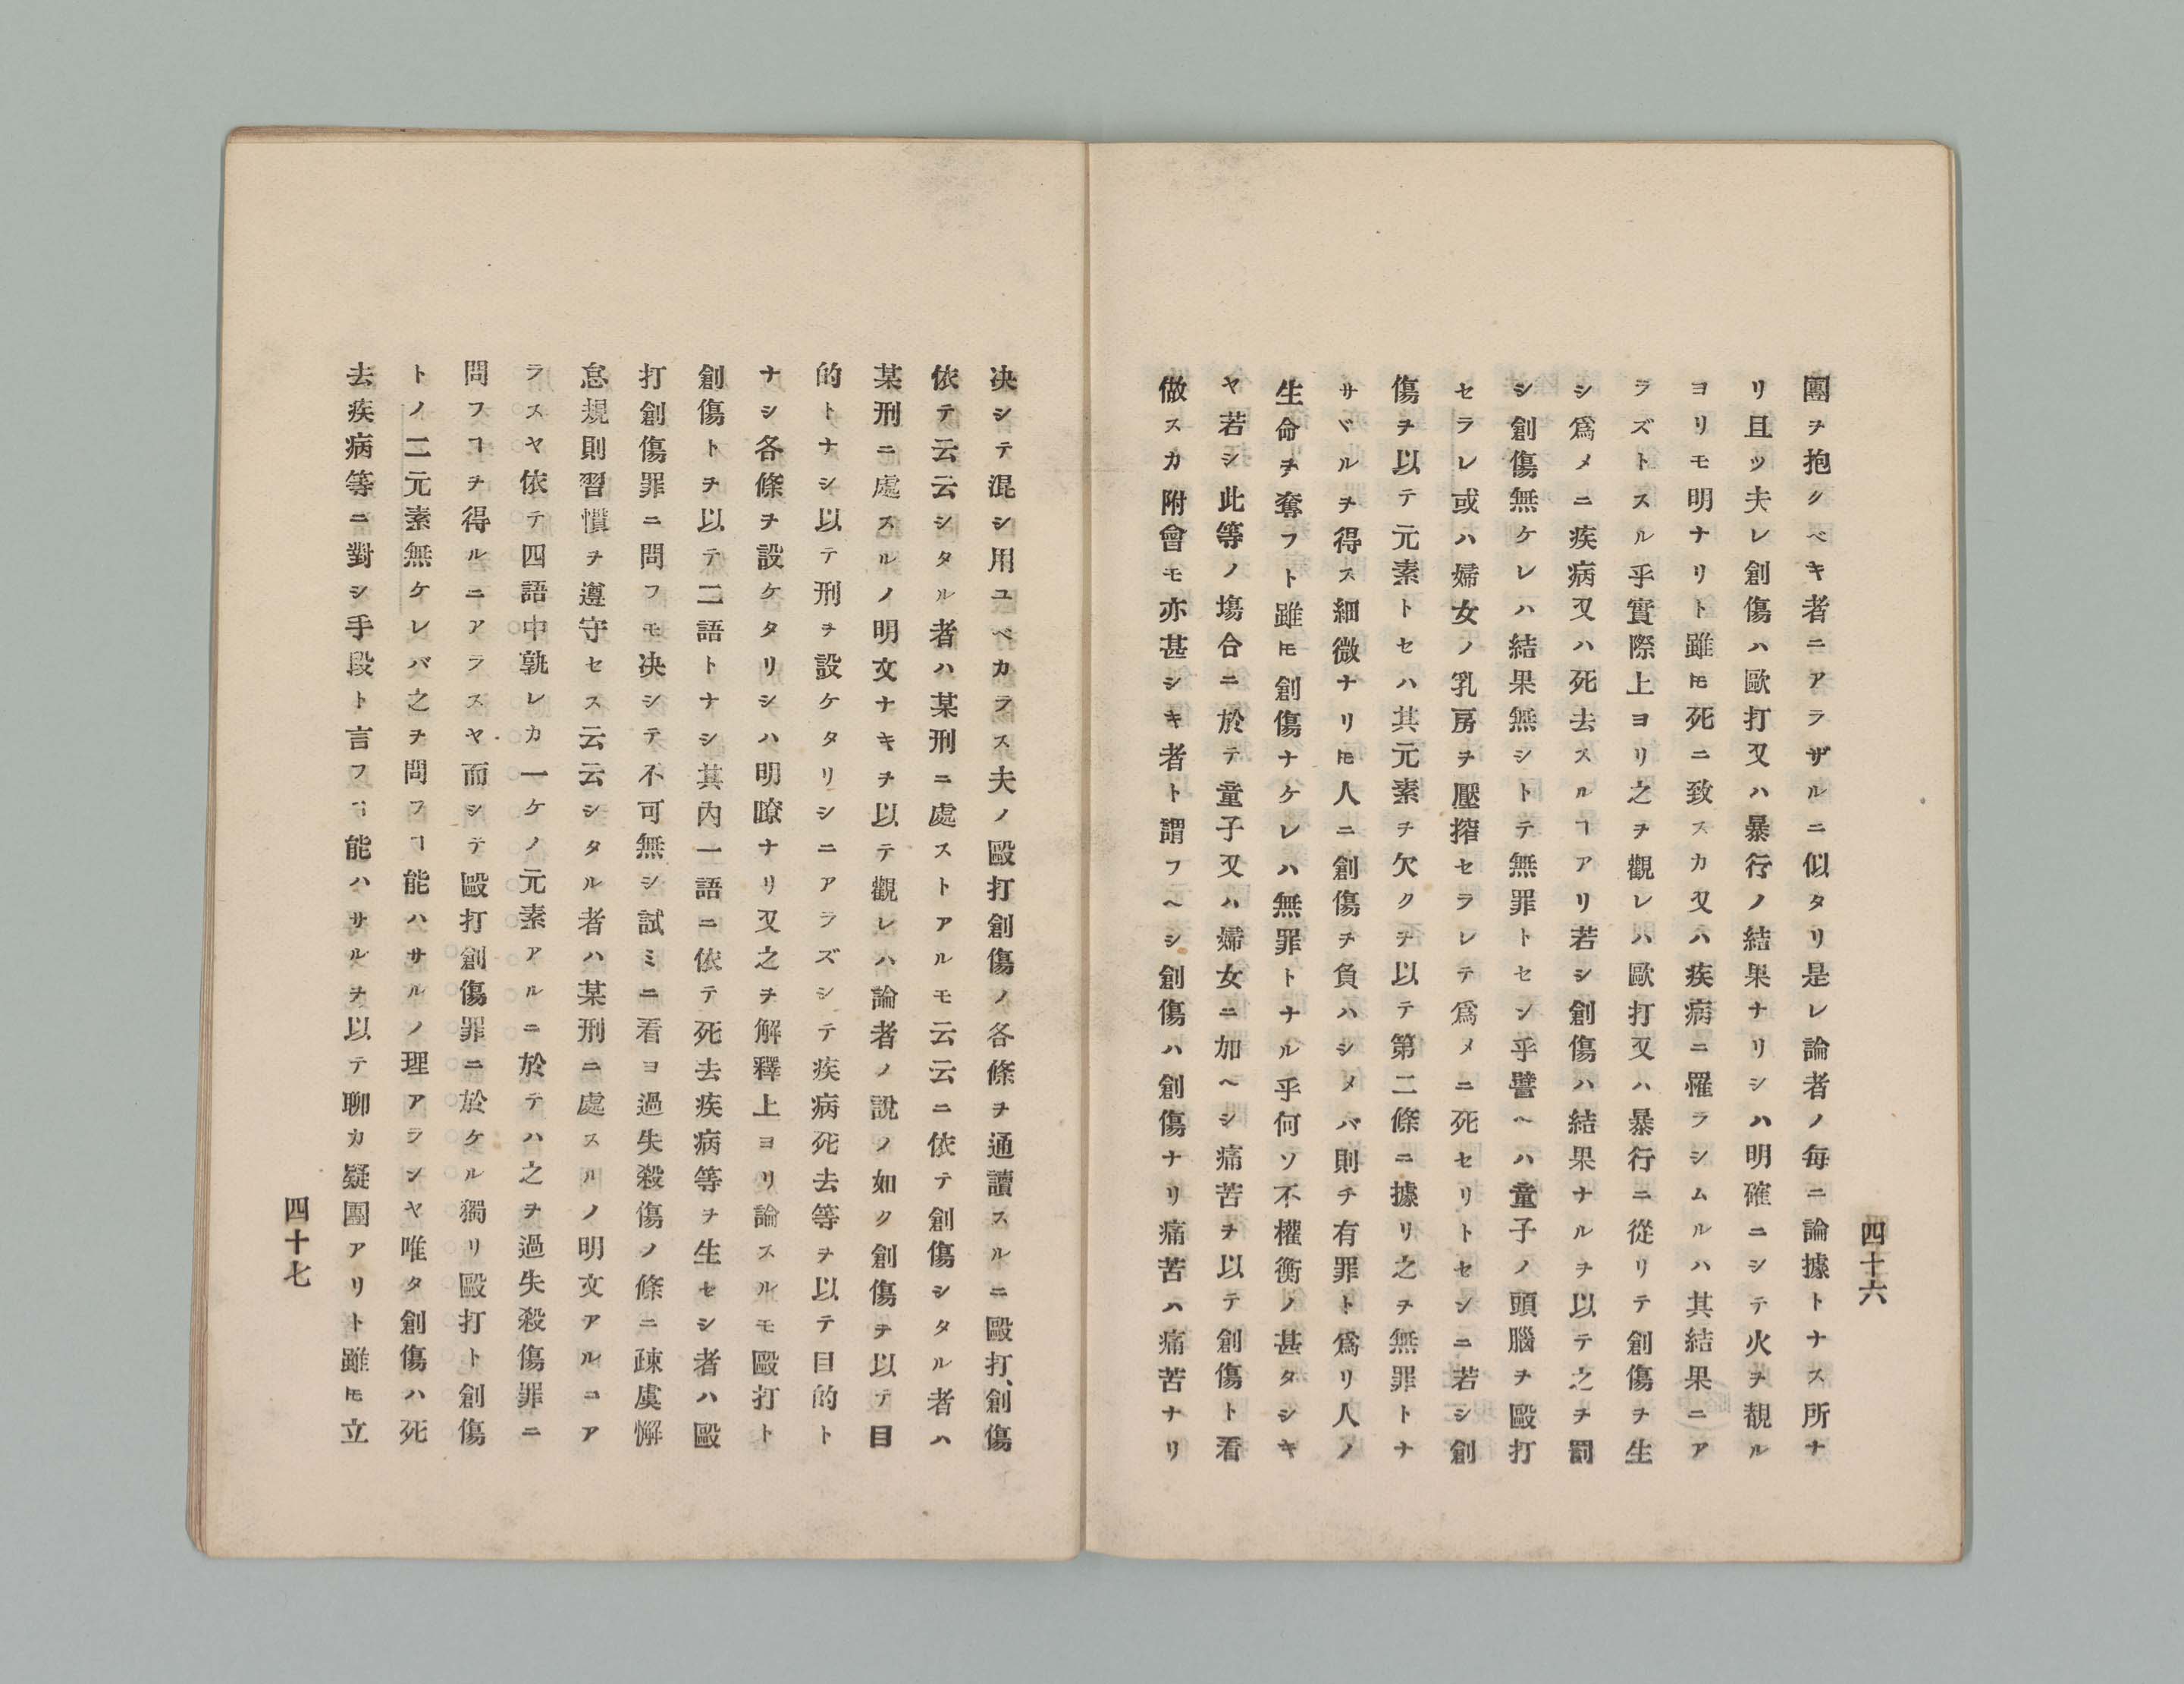 四十六
團ヲ抱クベキ者ニアラザルニ似タリ是レ論者ノ毎ニ論據トナス所ナ
リ且ッ夫レ創傷ハ歐打又ハ暴行ノ結果ナリシハ明確ニシテ火ヲ覩ル
ヨリモ明ナリト雖𪜈死ニ致スカ又ハ疾病ニ罹ラシムルハ其結果ニア
ラズトスル乎實際上ヨリ之ヲ觀レハ歐打又ハ暴行ニ從リテ創傷ヲ生
シ爲メニ疾病又ハ死去スルヿアリ若シ創傷ハ結果ナルヲ以テ之ヲ罰
シ創傷無ケレハ結果無シトテ無罪トセシ乎譬ヘハ童子ノ頭腦ヲ毆打
セラレ或ハ婦女ノ乳房ヲ壓搾セラレテ爲メニ死セリトセシニ若シ創
傷ヲ以テ元素トセハ其元素ヲ欠クヲ以テ第二條ニ據リ之ヲ無罪トナ
サヾルヲ得ス細微ナリ𪜈人ニ創傷ヲ負ハシメバ則チ有罪ト爲リ人ノ
生命ヲ奪フト雖𪜈創傷ナケレハ無罪トナル乎何ソ不權衡ノ甚タシキ
ヤ若シ此等ノ塲合ニ於テ童子又ハ婦女ニ加ヘシ痛苦ヲ以テ創傷ト看
做スカ附會モ亦甚シキ者ト謂フヘシ創傷ハ創傷ナリ痛苦ハ痛苦ナリ
决シテ混シ用ユベカラス夫ノ毆打創傷ノ各條ヲ通讀スルニ毆打、創傷
依テ云云シタル者ハ某刑ニ處ストアルモ云云ニ依テ創傷シタル者ハ
某刑ニ處スルノ明文ナキヲ以テ觀レハ論者ノ說ノ如ク創傷ヲ以テ目
的トナシ以テ刑ヲ設ケタリシニアラズシテ疾病死去等ヲ以テ目的ト
ナシ各條ヲ設ケタリシハ明瞭ナリ又之ヲ解釋上ヨリ論スルモ毆打ト
創傷トヲ以テ二語トナシ其内一語ニ依テ死去疾病等ヲ生セシ者ハ毆
打創傷罪ニ問フモ决シテ不可無シ試ミニ看ヨ過失殺傷ノ條ニ疎虞懈
怠規則習慣ヲ遵守セス云云シタル者ハ某刑ニ處スルノ明文アルニア
ラスヤ依テ四語中孰レカ一ケノ元素アルニ於テハ之ヲ過失殺傷罪ニ
問フヿヲ得ルニアラスヤ而シテ毆打創傷罪ニ於ケル獨リ毆打ト創傷
トノ二元素無ケレバ之ヲ問フヿ能ハサルノ理アランヤ唯タ創傷ハ死
去疾病等ニ對シ手段ト言フヿ能ハサルヲ以テ聊カ疑團アリト雖𪜈立
四十七